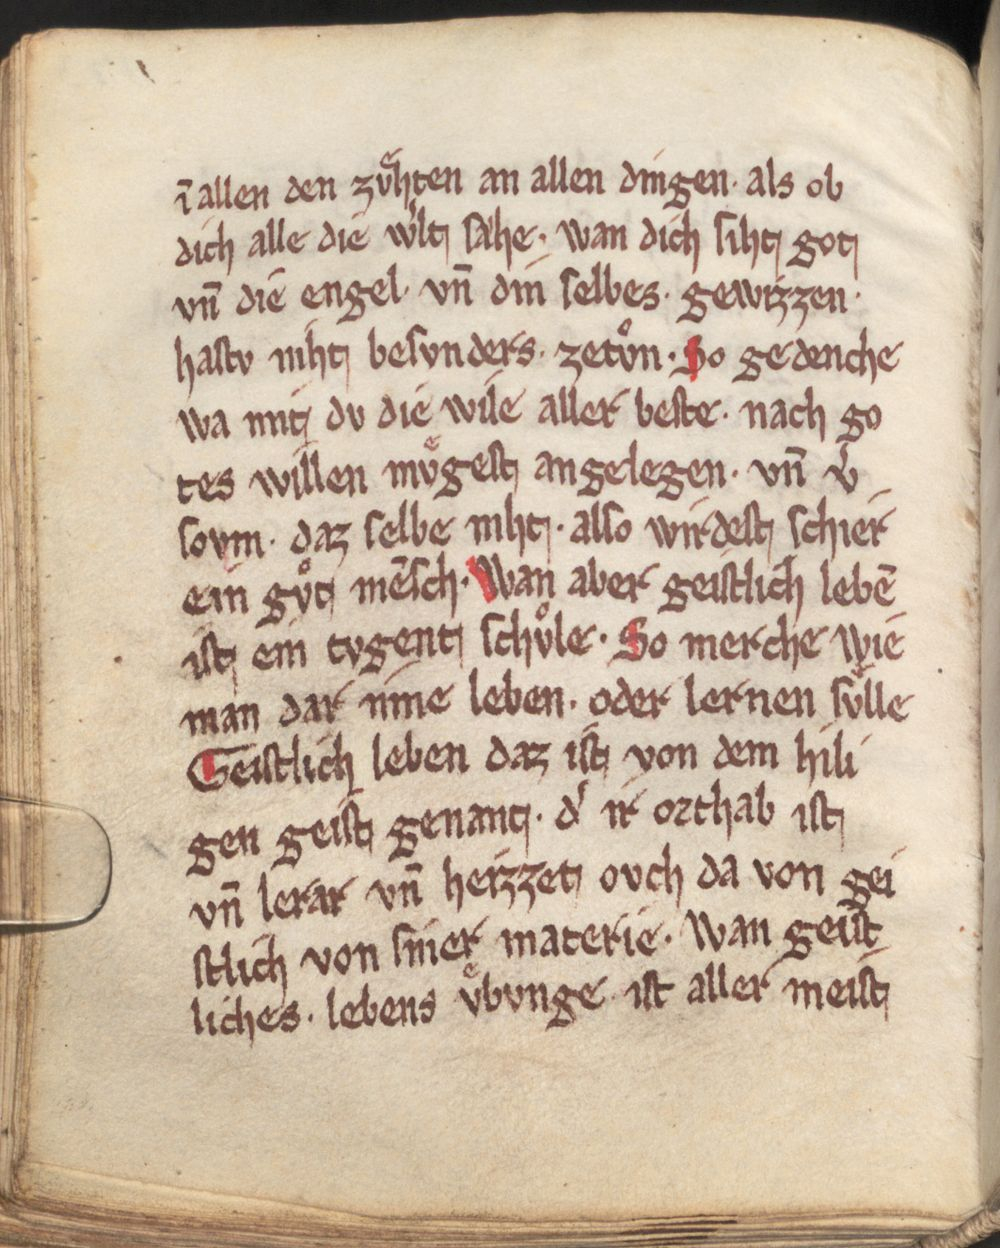 ī allen den zvͤhten an allen dingen · als ob
dich alle die w̾lt sähe · wan dich siht got
vn̄ die engel · vn̄ din selbes · gewizzen ·
hastv niht besvnders · zetvͦn · So gedenche
wa mit dv die wile aller beste · nach go
tes willen mvͤgest angelegen · vn̄ v̾
sovm · daz selbe niht · also wirdest schier
ein gvͦt mēsch · Wan aber geistlich lebē
ist ein tvgent schvͦle · So merche wie
man dar inne leben · oder lernen svͤlle
Geistlich leben daz ist von dem hili
gen geist genant · d̾ ir orthab ist
vn̄ lerar vn̄ heizzet ovch da von gei
stlich von siner materie · Wan geist
liches · lebens vͤbvnge · ist aller meist